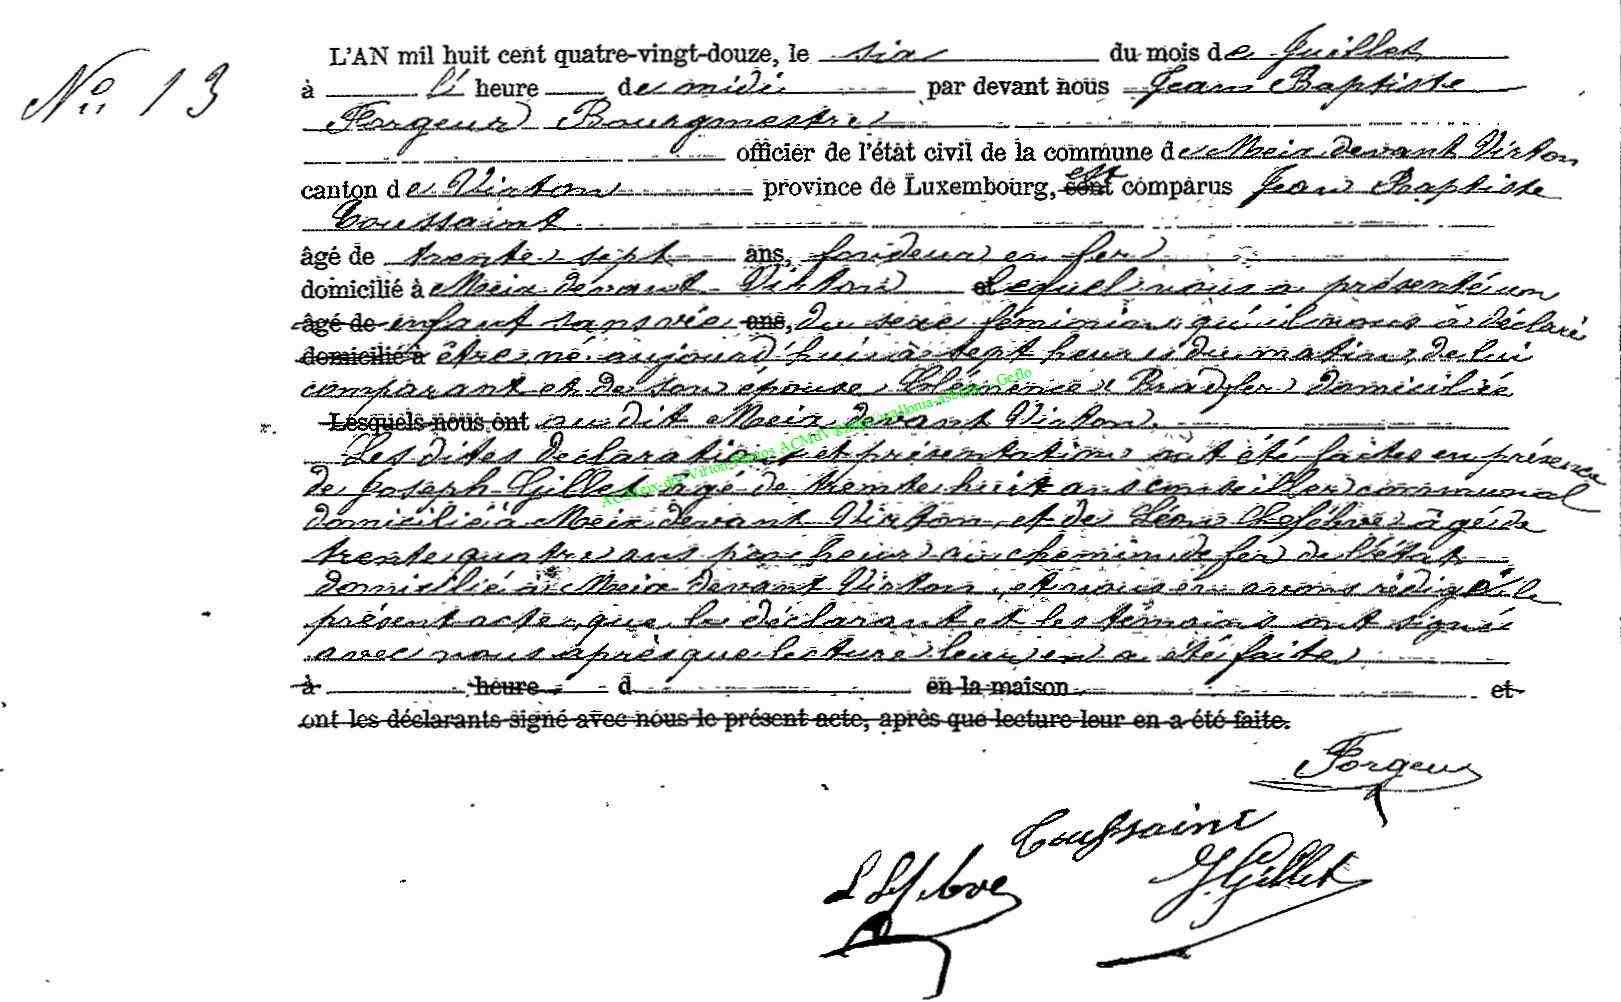 N° 13
L'AN mil huit cent quatre-vingt-douze, le six du mois de Juillet
à l' heure de midi par devant nous Jean Baptiste
Forgeur Bourgmestre
officier de l'état civil de la commune de Meix devant Virton
canton de Virton province de Luxembourg, sont est comparus Jean Baptiste
Toussaint
âgé de trente sept ans, fondeur en fer
domicilié à Meix devant Virton et Lequel nous a présenté un
âgé de enfant sans vie ans, du sexe féminin qu'il nous a déclaré
domicilié à être né aujourd'hui à sept heures du matin, de lui
comparant et de son épouse Clémence Bradfer domiciliée
Lesquels nous ont au dit Meix devant Virton.
Les dites déclaration et présentation ont été faites en présence
de Joseph Gillet âgé de trente huit ans conseiller communal
domicilié à Meix devant Virton, et de Léon Lefèbvre âgé de
trente quatre ans piocheur au chemin de fer de l'état
domicilié à Meix devant Virton, et nous en avons rédigé le
présent acte, que le déclarant et les témoins ont signé
avec nous après que lecture leur en a été faite
à heure d en la maison et
ont les déclarants signé avec nous le présent acte, après que lecture leur en a été faite.
Forgeur
Toussaint
L Lefebvre
J. Gillet